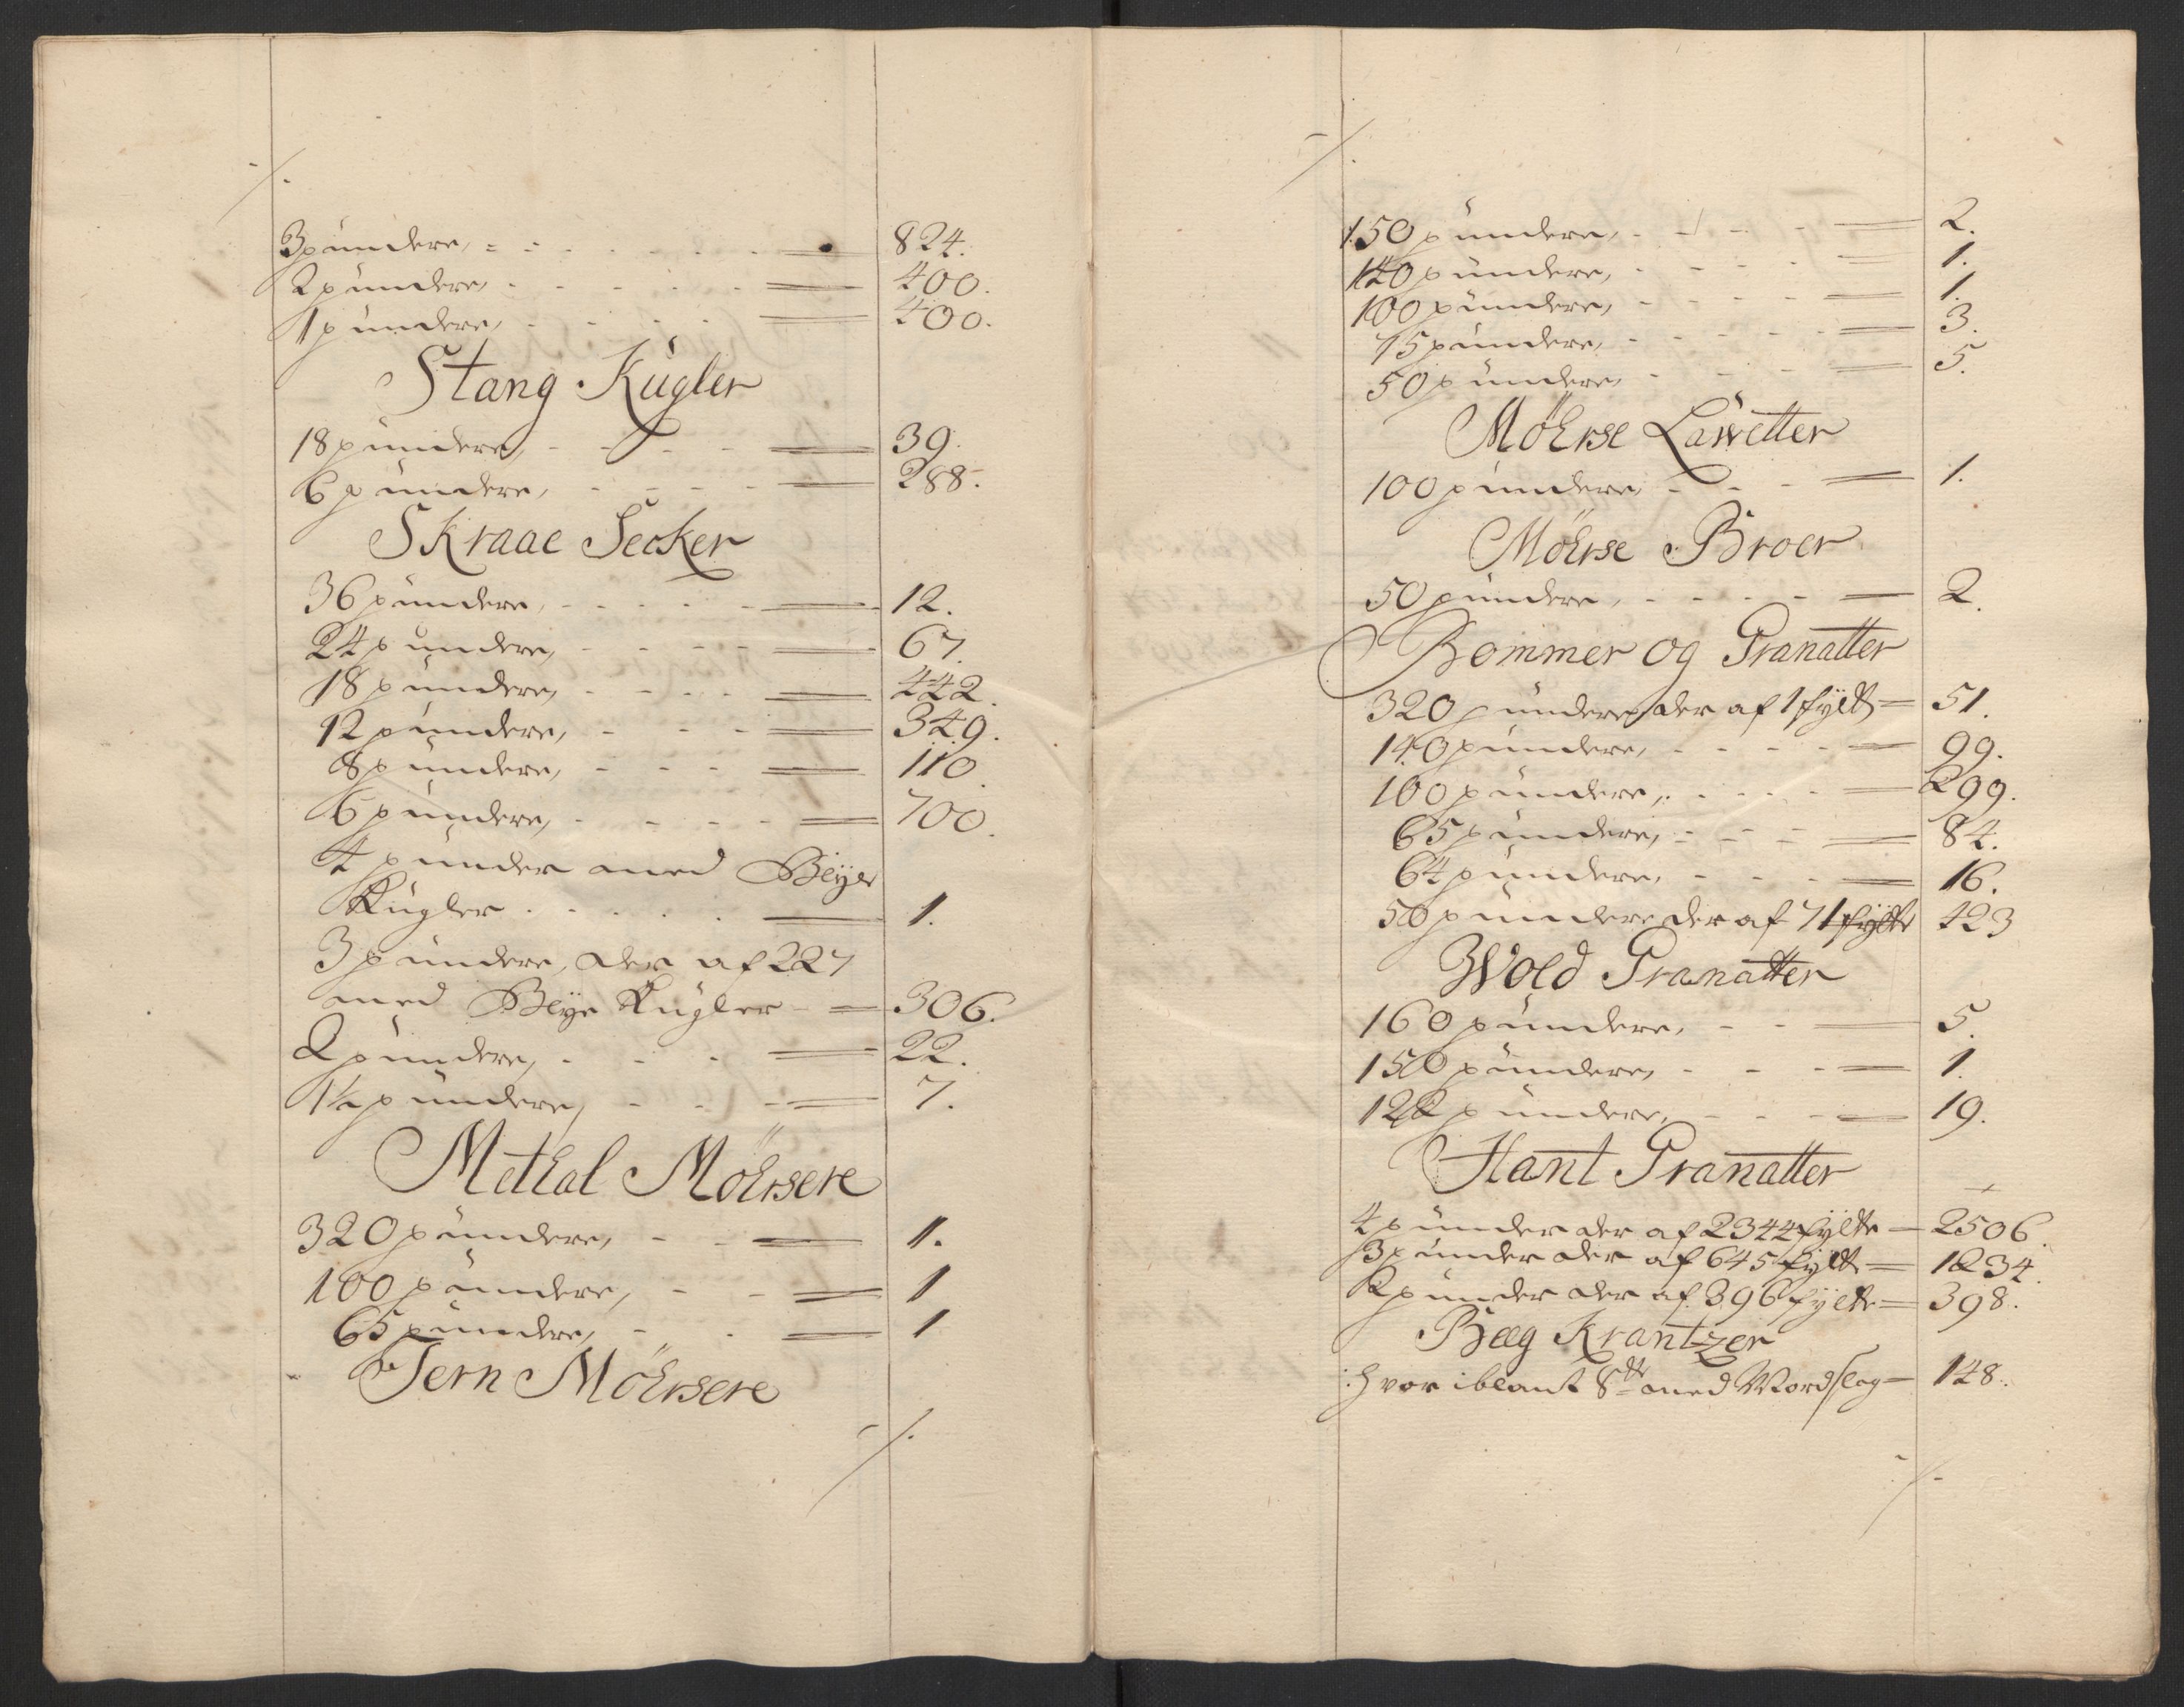 ./.
3pündere, 824.
2pündere, 400.
1pündere, 400.
Stang Kugler
18pündere, 39.
6pündere, 288.
Skraae Secker
36pündere, 12.
24pündere, 67.
18pündere, 442.
12pündere, 349.
8pündere, 110.
6pündere, 700.
4pünder med Blÿe
Kugler 1.
3pündere, der af 227
med Blÿe Kugler 306.
2pündere, 22.
1½pündere, 7.
Metal Möersere
320pündere, 1.
100pündere, 1
65pündere, 1
Jern Möersere
./.
./.
150pündere, 2.
140pündere, 1.
100pündere, 1.
75pündere, 3.
50pündere, 5.
Möerse Lawetter
100pündere, 1.
Möerse Broer
50pündere, 2.
Bommer og Granatter
320pündere der af 1 fÿlt 51.
140pündere, 99.
100pündere, 299.
65pündere, 84.
64pündere, 16.
50pündere der af 71 fÿlte 423
Wold Granatter
160pündere, 5.
150pündere, 1.
122pündere, 19.
Hant Granatter
4pünder der af 2344 fÿlte 2506.
3pünder der af 645 fÿlte 1234.
2pünder der af 396 fÿlte 398.
Bæg Krantzer
hvor iblant 8 med Mordslag 148.
./.